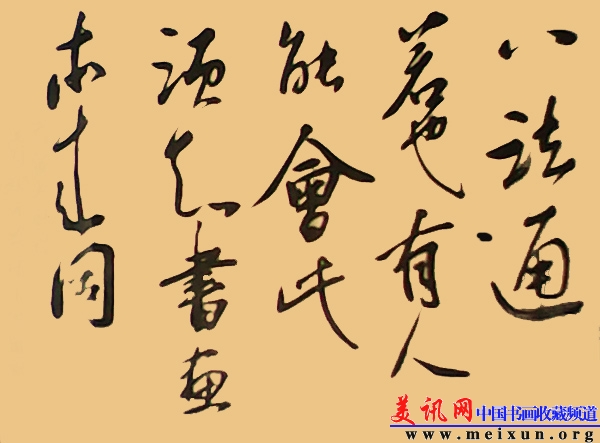 八法通
若也有人
能會此
須知書畫
本来同
美讯网 中国书画收藏频道
www.meixun.org